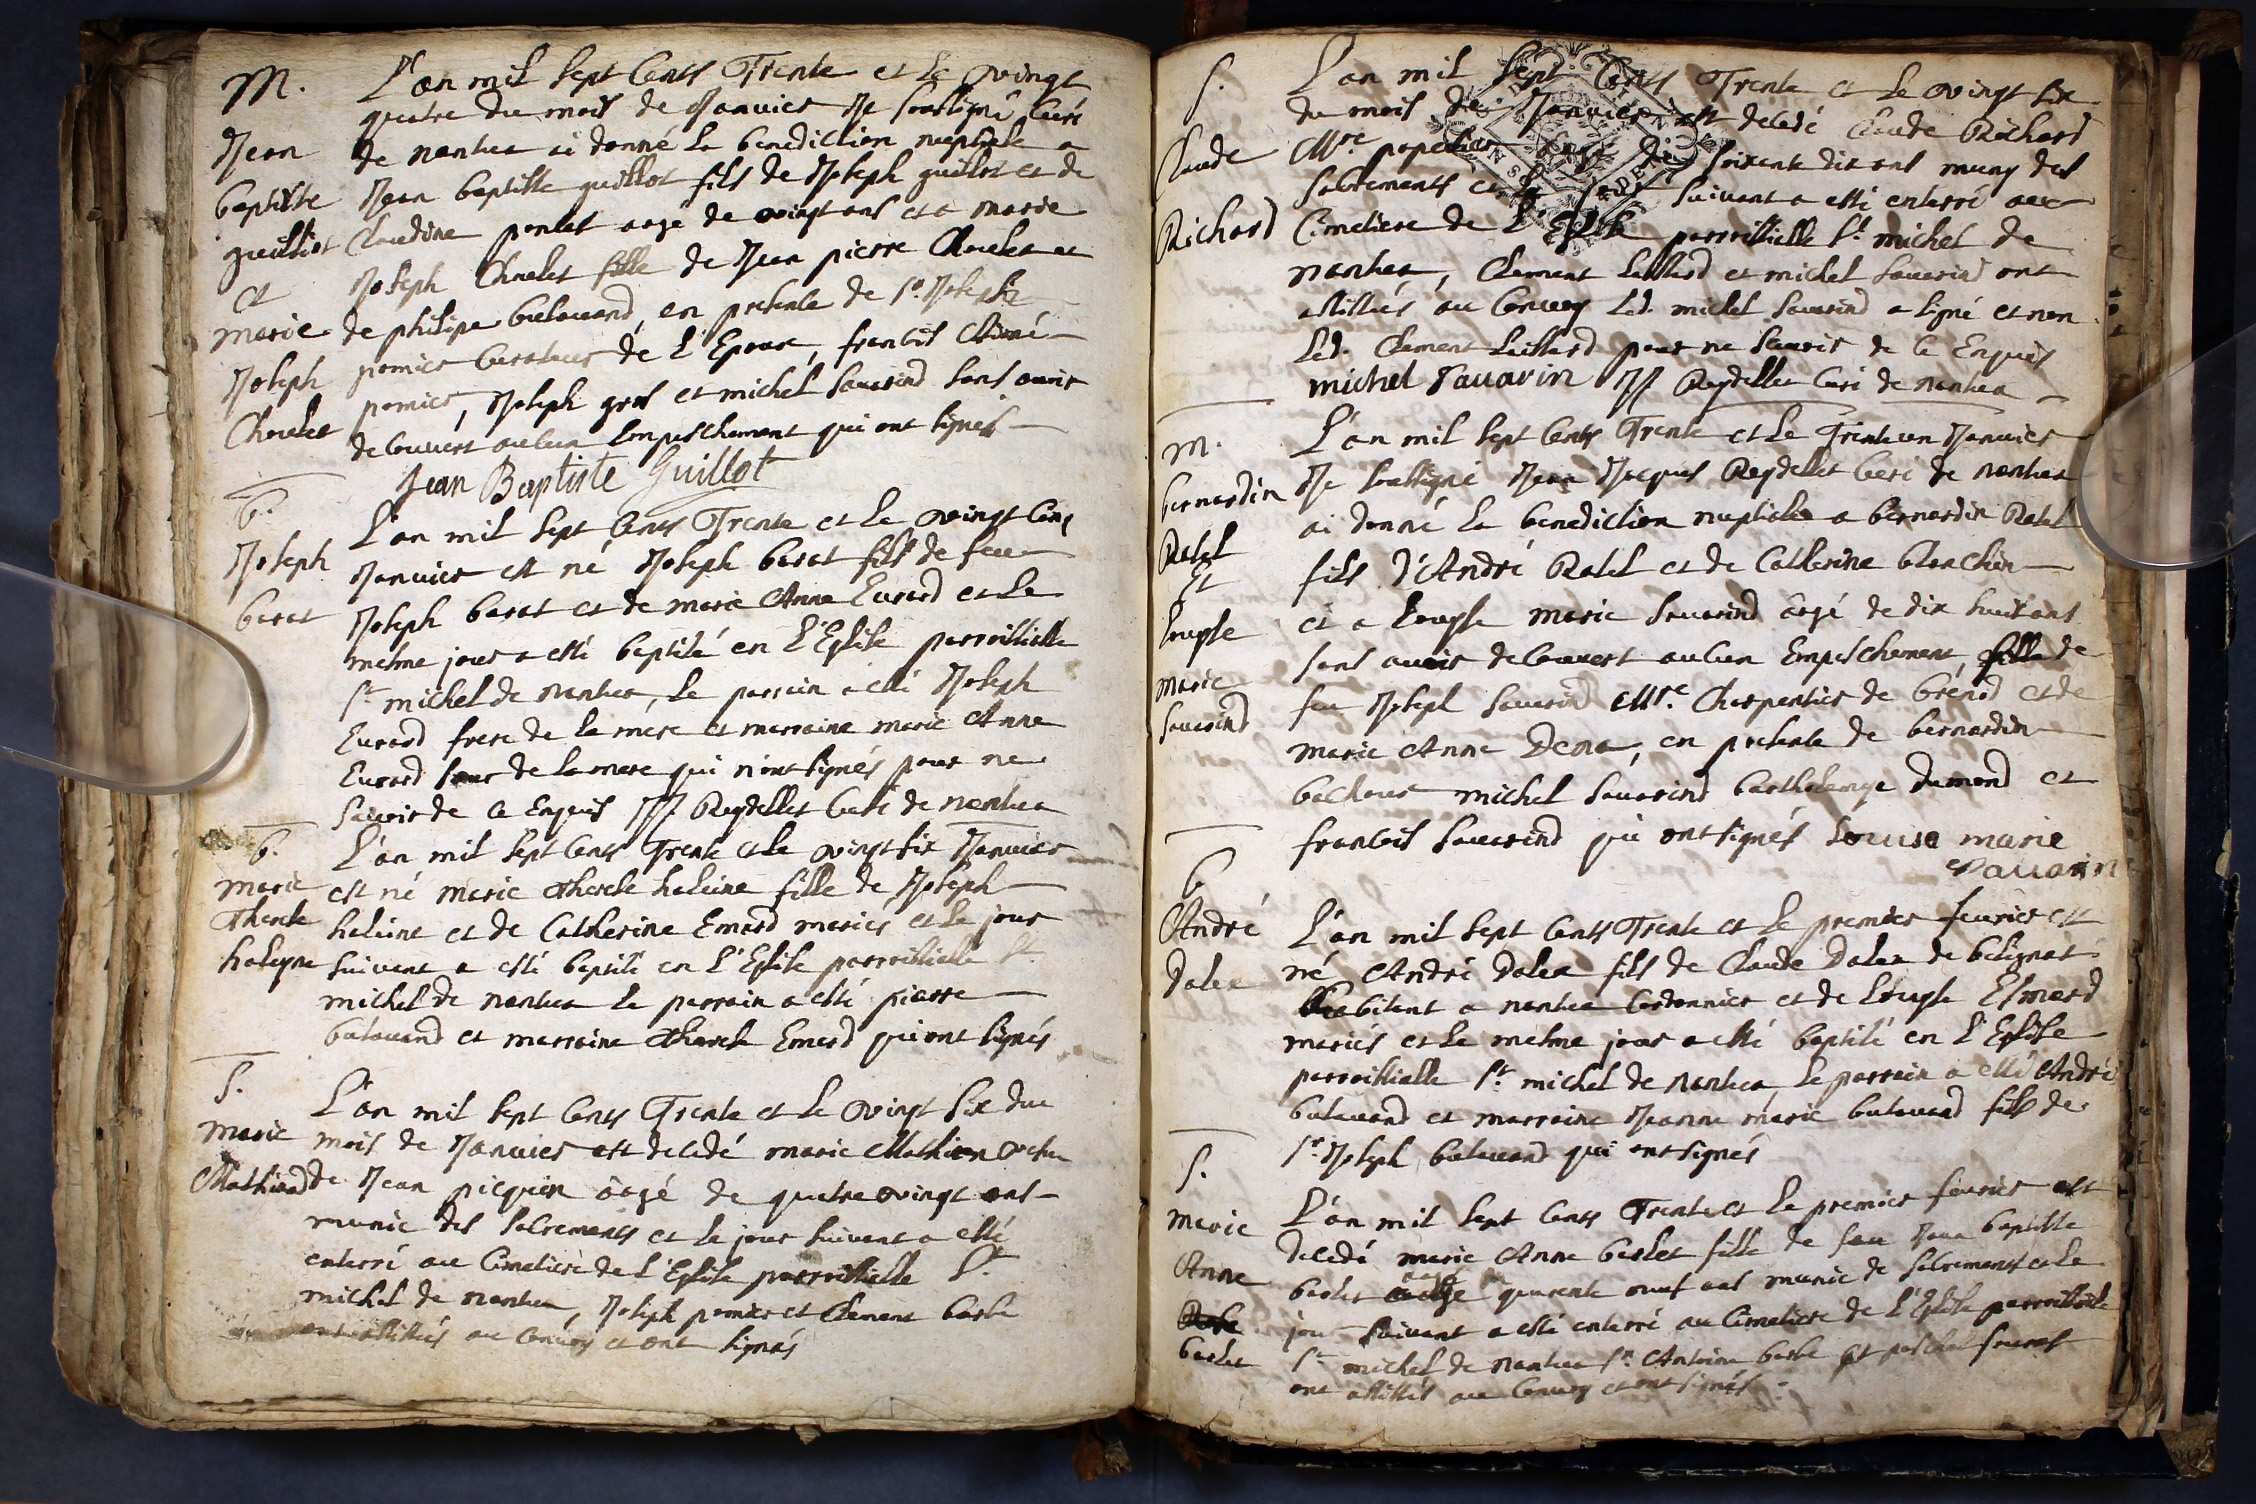 M.
Jean
baptiste
guilliot
et
marie
Joseph
Choulet
L'an mil sept cents Trente et le vingt
quatre du mois de Janvier Je soussigné Curé
de nantua ai donné la benediction nuptiale a
Jean baptiste guillot fils de Joseph guillot et de
Claudine poulat aagé de vingt ans et a marie
Joseph Choulet fille de Jean pierre Choulet et
de philipa butavand, en presence de Sr. Joseph
pomier Curateur de l'Epoux, francois Aimé
pomier, Joseph gros et michel Sauarind sans avoir
decouvert aucun Empeschement qui ont signés
Jean Baptiste Guillot
b.
Joseph
barat
L'an mil sept cents Trente et le vingt Cinq
Janvier est né Joseph barat fils de feu
Joseph barat et de marie Anne Eurard et le
mesme jour a esté baptisé en l'Eglise parroissialle
St. michel de nantua, le parrain a esté Joseph
Eurard frere de la mere et marraine marie Anne
Eurard sœur de la mere qui n'ont signés pour ne
Scavoir de ce Enquis JJ Reydellet Curé de nantua
b.
marie
Therese
haleine
L'an mil sept cents Trente et le vingt six Janvier
est né marie Therese haleine fille de Joseph
haleine et de Catherine Emard mariés et le jour
suivant a esté baptisé en l'Eglise parroissialle St.
michel de nantua le parrain a esté pierre
butavand et marraine Therese Emard qui ont signés
S.
marie
Mathieud
L'an mil sept cents Trente et le vingt six du
mois de Janvier est decedé marie Mathieu vefve
de Jean picquin aagé de quatre vingt ans
munie des sacrements et le jour suivant a esté
enterré au Cimetiere de l'Eglise parroissialle St.
michel de nantua, Joseph pomier et Clement barbe
ont assistés au convoy et ont signés
S.
Claude
Richard
L'an mil sept cents Trente et le vingt six
du mois de Janvier est decedé Claude Richard
Mre. papetier aagé de soixente dix ans muny des
sacrements et le jour suivant a esté enterré au
Cimetiere de l'Eglise parroissialle St. michel de
nantua, Clement Laillard et michel Sauarind ont
assistés au Convoy Led. michel Sauarind a signé et non
Led. Clement Laillard pour ne scavoir de ce Enquis
michel Sauarin JJ Reydellet Curé de nantua
m.
bernardin
Ratel
Et
Louyse
marie
Sauarind
L'an mil sept cents Trente et le Trente un Janvier
Je soussigné Jean Jacques Reydellet Curé de nantua
ai donné la benediction nuptiale a bernardin Ratel
fils d'André Ratel et de Catherine blanchin
et a Louyse marie Sauarind aagé de dix huit ans
sans avoir decouvert aucun Empeschement, fille de
feu Joseph Sauarind Mre. Charpentier de brénod et de
marie Anne Dena, en presence de bernardin
bachour michel Sauarind barthelemye dumond et
francois Sauarind qui ont signés Louise marie
Sauarin
b.
André
Dalea
L'an mil sept cents Trente et le premier feurier est
né André Dalea fils de Claude Dalea de belignat
habitant a nantua Cordonnier et de Louyse Esmard
mariés et le mesme jour a esté baptisé en l'Eglise
parroissialle St. michel de nantua le parrain a esté André
butavand et marraine Jeanne marie butavand fille de
Sr. Joseph butavand qui ont signés
S.
marie
Anne
barlet
L'an mil sept cents Trente et le premier feurier est
decedé marie Anne barlet fille de feu Jean baptiste
barlet aagé quarente neuf ans munie de sacrements et le
jour suivant a esté enterré au Cimetiere de l'Eglise parroissialle
St. michel de nantua Sr. Antoine barbe et paschal
ont assistés au Convoy et ont signés